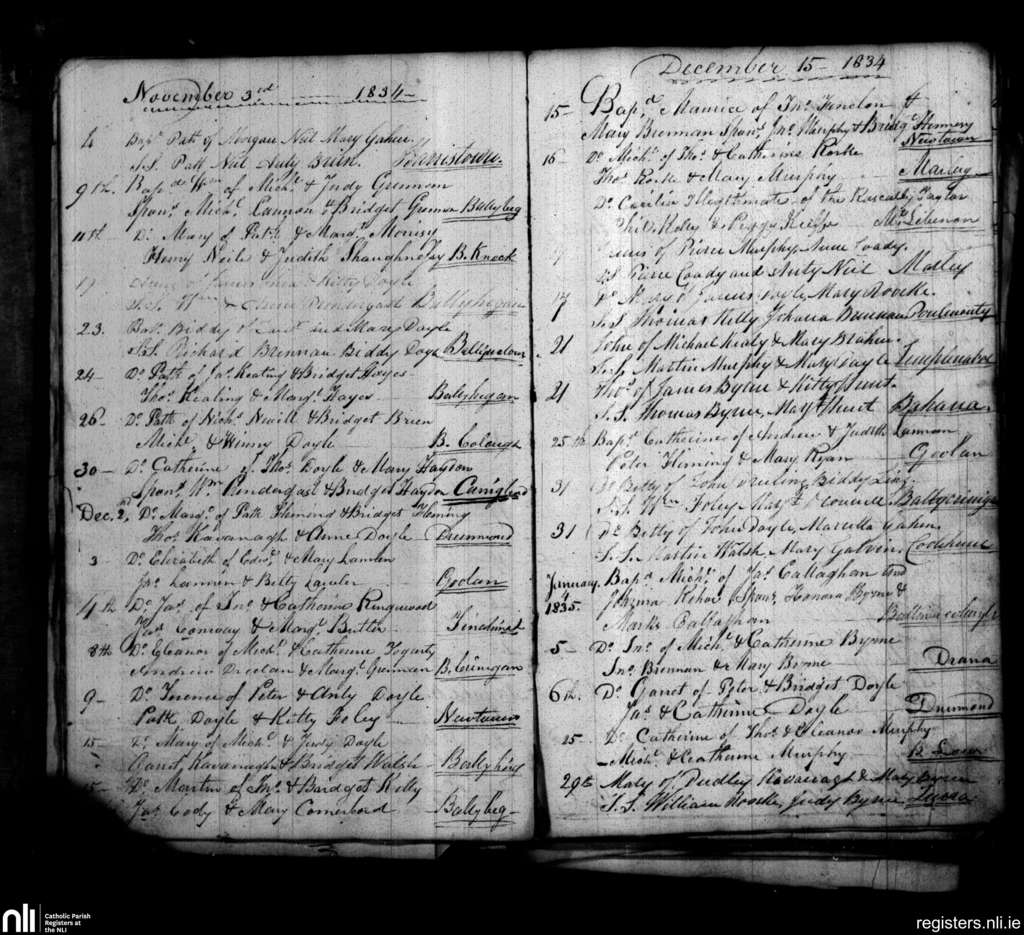 November 3rd 1834
4 Bapd Patk of Morgan Neil Mary Gahen
S.S. Patt Neil Anty Brien. Harristown.
9th. Bapd Wm of Michl & Judy Grennan
Sponrs Michl Cannon & Bridget Grennan Ballybeg
11th Do Mary of Patk & Margt Morrisy
Henry Neile & Judith Shaughnessy B. Knock
19 of James and Kitty Doyle
S.S. Wm Prendergast Ballyhegan
23. Bap. Biddy of and Mary Doyle
S.S. Richard Brennan Biddy Doyle
24 Do Patk of Jas Keating & Bridget Hayes
Thos Kealing & Margt Hayes Ballyhegan
26 Do Patk of Nichs Nevill & Bridget Brien
Michl & Winny Doyle B. Colough
30 Do Catherine of Thos Doyle & Mary Haydon
Sponrs Wm Prendergast & Bridget Haydon
Dec. 2. Do Margt of Patk Hemond & Bridget Fleming
Thos Kavanagh & Anne Doyle Drummond
3 Do Elizabeth of Edwd & Mary Lannen
Jas Lannen & Betty Lawler Goolan
4th Do Jas of Jno & Catherine Ringwood
Jas Conway & Margt Butler Tinchinat
8th Do Eleanor of Michl & Catherine Fogarty
Andrew Droolan & Margt Grennan B. Crinnigan
9 Do Terence of Peter & Anty Doyle
Patk Doyle & Kitty Foley Newtown
15 Do Mary of Michl & Judy Doyle
Garret Kavanagh & Bridget Walsh Ballyling
15 Do Martin of Jno & Bridget Kelly
Jas Cody & Mary Comerford Ballybeg
December 15 1834
15 Bapd Maurice of Jno Fenelon &
Mary Brennan Sponrs Jno Murphy & Bridgt Hennery Newtown
16 Do Michl of Thos & Catherine Rorke
Thos Rorke & Mary Murphy Marley
Do Cecilia Illegitimate of the Rascally Taylor
Phil. Kelly & Peggy Mt. Libenon
17 James of Pierce Murphy Anne Coady.
S.S. Pierce Coady and Anty Neil Marley
17 Do Mary of James Doyle, Mary Rourke.
S.S. Thomas Kelly Johana Brennan Poulmonty
21 John of Michael Kealy & Mary Brahen
S.S. Martin Murphy & Mary Doyle
21 Thos of James Byrne & Kitty Hunt.
S.S. Thomas Byrne, Mary Hunt Bahana
25th Bapd Catherine of Andrew & Judith Lannon
Peter Fleming & Mary Ryan Goolan
31 Do Betty of John Biddy
S.S. Wm Foley Margt Ballycrinigan
31 Do Betty of John Doyle, Marcella Gahen.
S.S. Martin Walsh, Mary Galvin
January 4 1835. Bapd Michl of Jas Callaghan and
Kehoe Sponrs Honora Byrne &
Mark Callaghan
5 Do Jno of Michl & Catherine Byrne
Jno Brennan & Mary Byrne Drana
6th. Do Garret of Peter & Bridget Doyle
Jas & Catherine Doyle Drummond
25 Do Catherine of Thos & Eleanor Murphy
Michl & Catherine Murphy
29th Mary of Dudley Kavanagh & Mary Byrne
S.S. William Rooke, Judy Byrne
nli Catholic Parish
Registers at
the NLI
registers.nli.ie